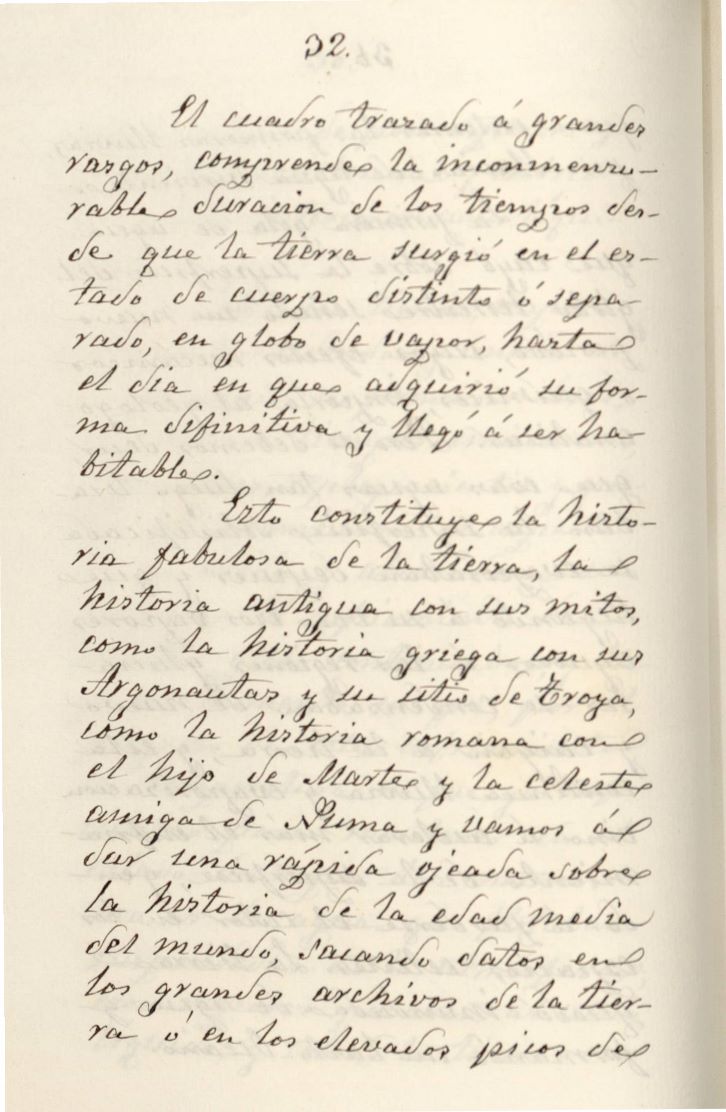 32.
El cuadro trazado á grandes
rasgos, comprende la inconmensu-
rable duracion de los tiempos des-
de que la tierra surgió en el es-
tado de cuerpo distinto ó sepa-
rado, en globo de vapor, hasta
el dia en que adquirió su for-
ma difinitiva y llegó á ser ha-
bitable.
Esto constituye la histo-
ria fabulosa de la tierra, la
historia antigua con sus mitos,
como la historia griega con sus
Argonautas y su sitio de Troya,
como la historia romana con
el hijo de Marte y la celeste
amiga de Numa y vamos á
dar una rápida ojeada sobre
la historia de la edad media
del mundo, sacando datos en
los grandes archivos de la tier-
ra ó en los elevados picos de